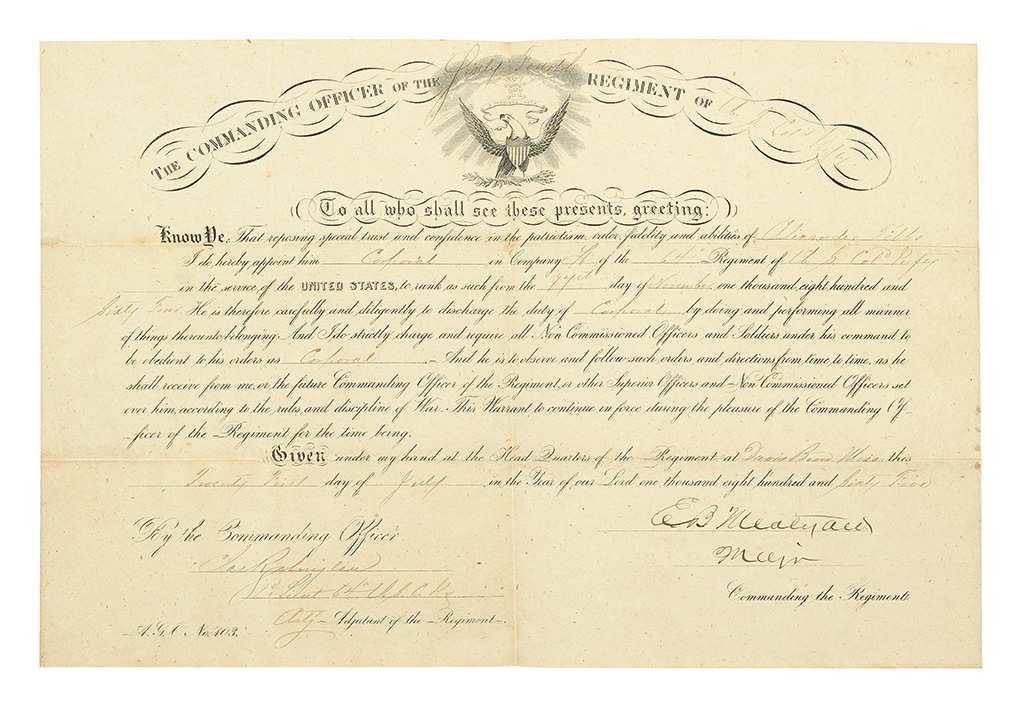 THE COMMANDING OFFICER OF THE Sixty Fourth REGIMENT OF U.S.
To all who shall see these presents, greeting:
Know Ye: That reposing special trust and confidence in the patriotism, valor, fidelity and abilities of Alexander
I do hereby appoint him Corporal in Company H of the 64th Regiment of U. S. Cold Infty
in the service of the UNITED STATES, to rank as such from the day of November one thousand, eight hundred and
Sixty Four. He is therefore carefully and diligently to discharge the duty of Corporal by doing and performing all manner
of things thereunto belonging. And I do strictly charge and require all Non Commissioned Officers and Soldiers under his command to
be obedient to his orders as Corporal. And he is to observe and follow such orders and directions from time to time, as he
shall receive from me, or the future Commanding Officer of the Regiment, or other Superior Officers and Non Commissioned Officers set
over him, according to the rules and discipline of War. This Warrant to continue in force during the pleasure of the Commanding Of-
-ficer of the Regiment for the time being.
Given under my hand at the Head Quarters of the Regiment at Davis Bend Miss. this
Twenty First day of July in the Year of our Lord one thousand eight hundred and Sixty Five
E B
Major
By the Commanding Officer
Chas
1st Lieut 64th U.S.C.
Commanding the Regiment.
Actg Adjutant of the Regiment.
A.G.O. No. 103.